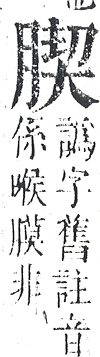 譌字舊註音
係喉膜非